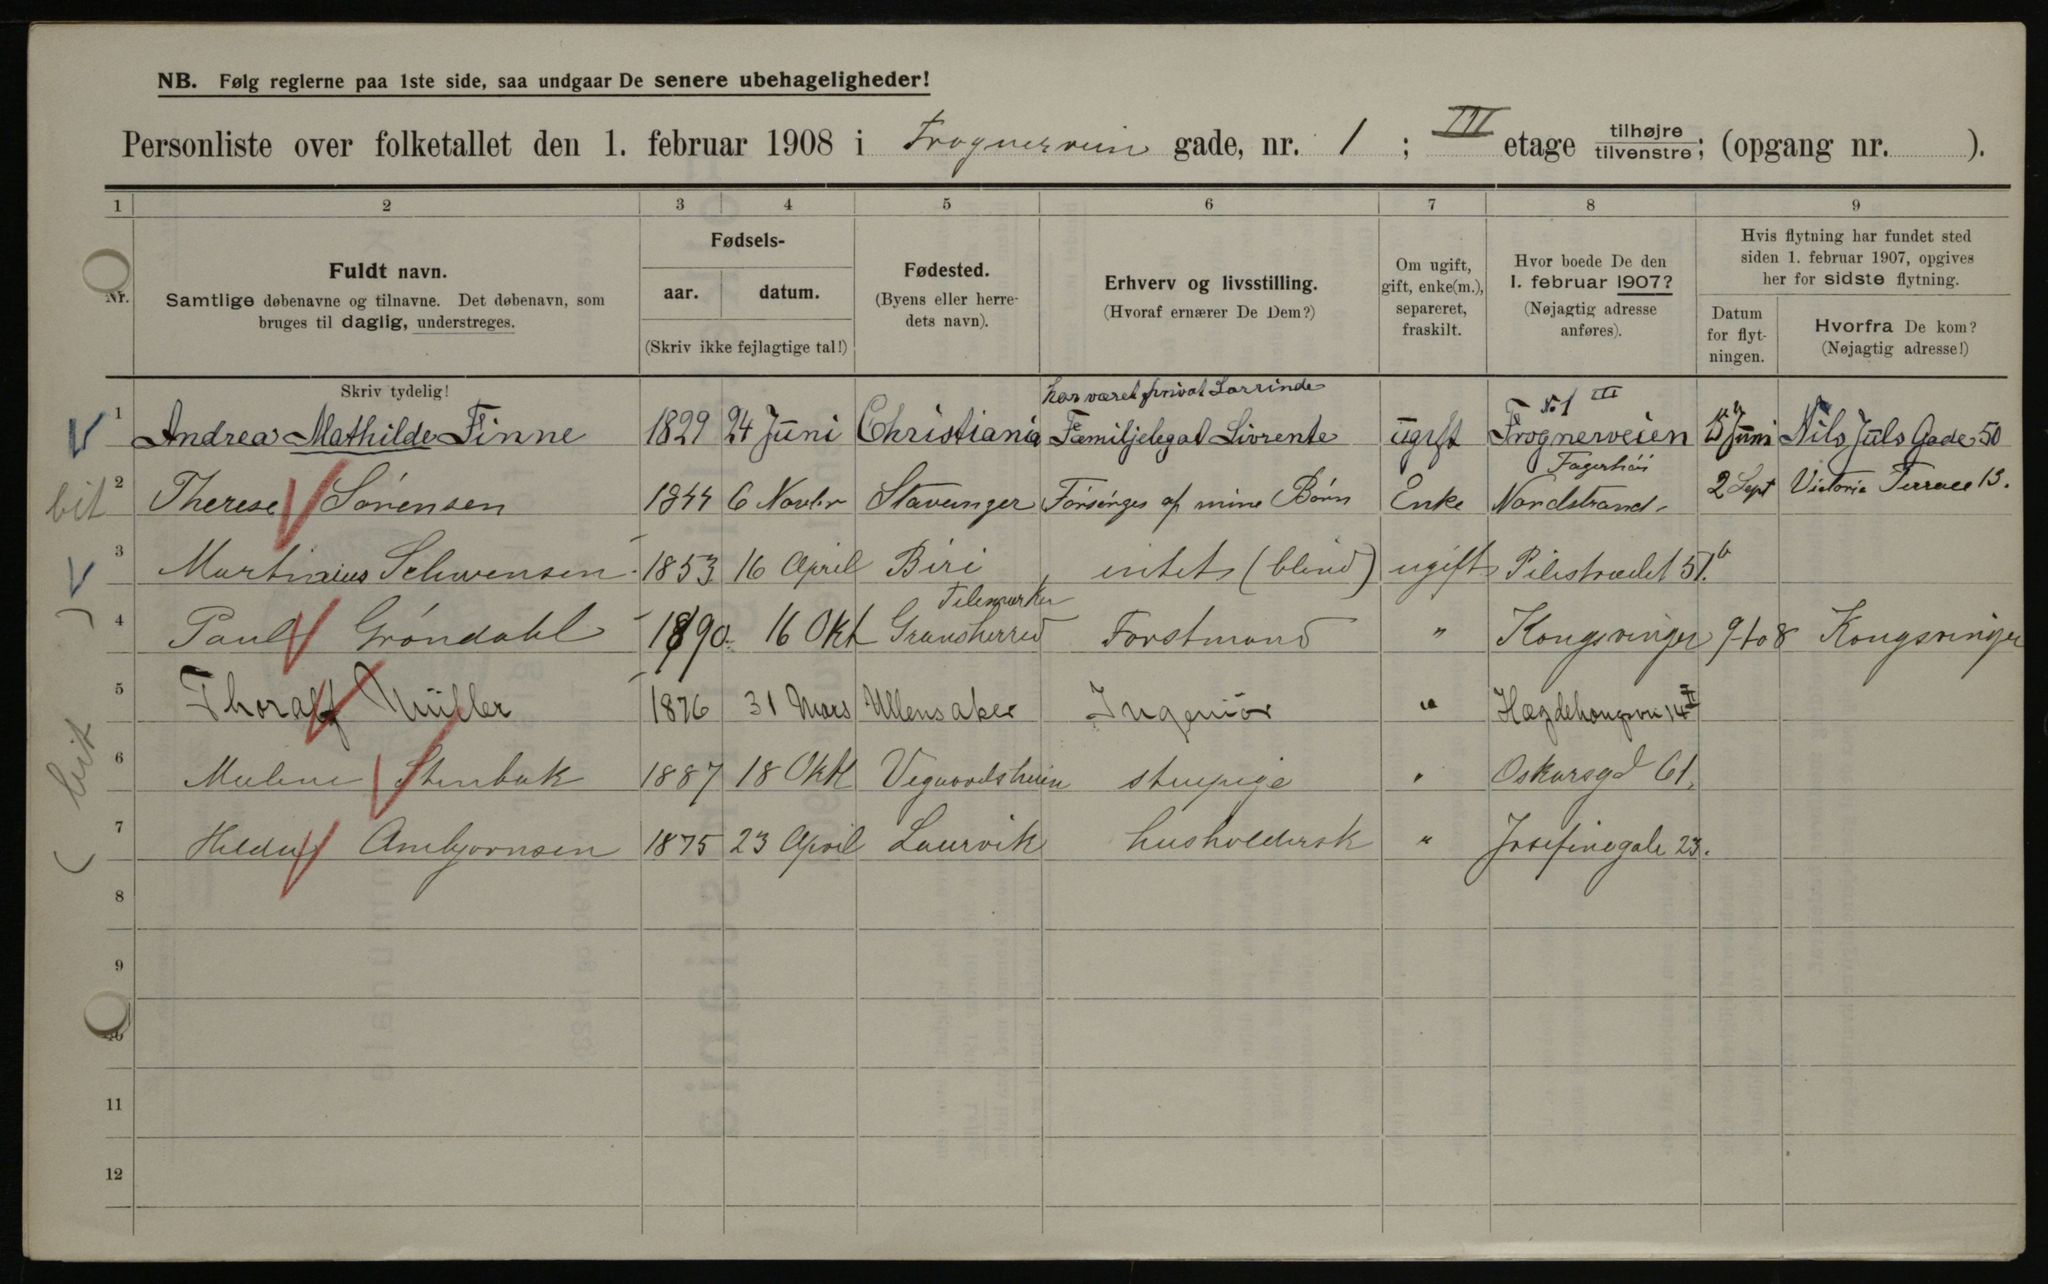 NB. Følg reglerne paa 1ste side, saa undgaar De senere ubehageligheder!
Personliste over folketallet den 1. februar 1908 i Frognerveien gade, nr. 1 ; III etage tilhøjre tilvenstre; (opgang nr. ).
1 2 3 4 5 6 7 8 9
Nr.
Fuldt navn.
Samtlige døbenavne og tilnavne. Det døbenavn, som
bruges til daglig, understreges.
Skriv tydelig!
Fødsels-
aar. datum.
(Skriv ikke fejlagtige tal!)
Fødested.
(Byens eller herre-
dets navn).
Erhverv og livsstilling.
(Hvoraf ernærer De Dem?)
Om ugift,
gift, enke(m.),
separeret,
fraskilt.
Hvor boede De den
1. februar 1907?
(Nøjagtig adresse
anføres).
Hvis flytning har fundet sted
siden 1. februar 1907, opgives
her for sidste flytning.
Datum
for flyt-
ningen.
Hvorfra De kom?
(Nøjagtig adresse!)
har været privat Lærrinde
No 1 III
1 Andrea Mathilde Finne 1829 24 Juni Christiania Familjelegat Livrente ugift Frognerveien 15 Juni Nils Juls Gade 50
Fagerhøi
bit 2 Therese Sørensen 1844 6 Novbr Stavanger Forsørges af mine Børn Enke Nordstrand 2 Sept Victoria Terrace 13.
3 Martinius Schwensen 1853 16 April Biri intet (blind) ugift Pilestrædet 51.b
Telemarken
4 Paul Grøndahl 1890 16 Okt Gransherred Forstmand " Kongsvinger 9/1 08 Kongsvinger
5 Thoralf Müller 1876 31 Mars Ullensaker Ingeniør " 14 II
bit 6 Stenbak 1887 18 Okt Vegaardsheien stuepige " Oskarsgd 61.
7 Hilda Ambjørnsen 1875 23 April Laurvik husholdersk " Josefinegade 23.
8
9
10
11
12